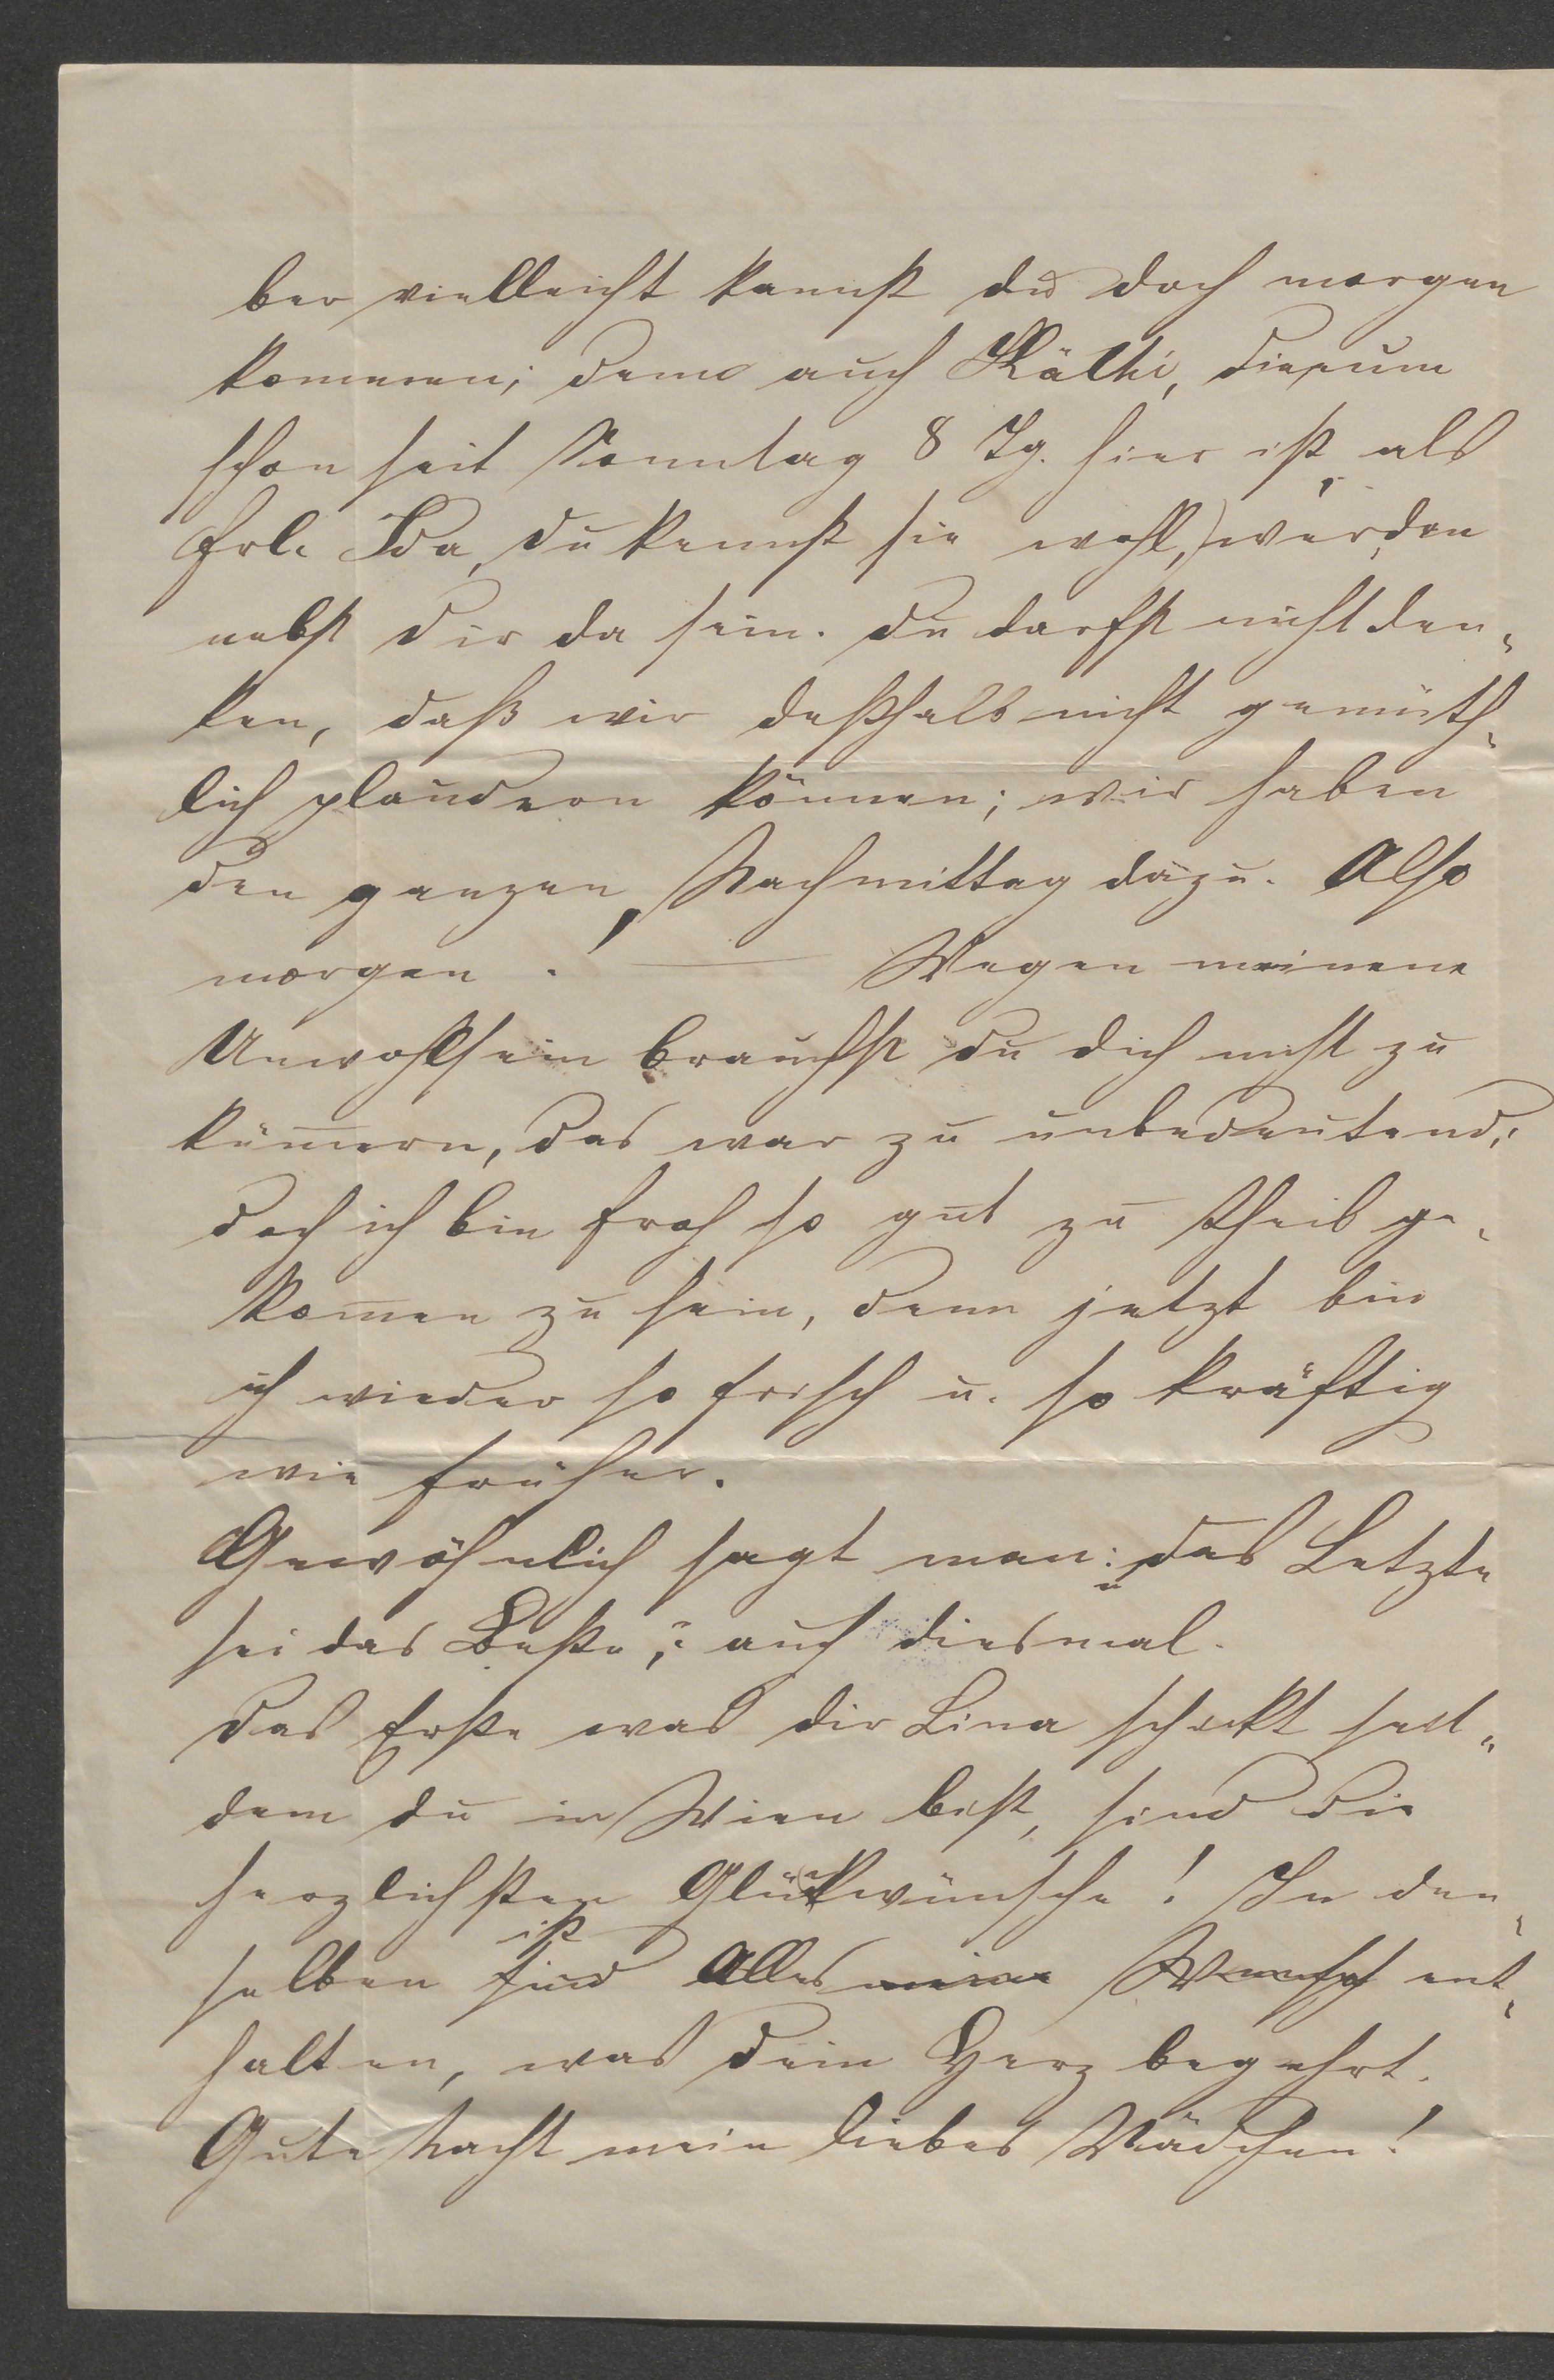 ber vielleicht kannst du doch morgen
kommen; denn auch Käthi, die nun
schon seit Sonntag 8 Tg. hier ist, als
Frl. Ida, du kennst sie wohl,) werden
nebst dir da sein. Du darfst nicht den„
ken, daß wir deßhalb nicht gemüth„
lich plaudern können; wir haben
den ganzen Nachmittag dazu. Also
morgen! — Wegen meinem
Unwohlsein brauchst du dich nicht zu
küm̅ern, das war zu unbedeutend;
doch ich bin froh so gut zu theil ge„
kom̅en zu sein, denn jetzt bin
ich wieder so frisch u. so kräftig
wie früher.
Gewöhnlich sagt man: „das Letzte
sei das Beste,“ auch diesmal.
Das Erste was dir Lina schickt seit„
dem du in Wien bist, sind die
herzlichsten Glückwünsche! In den„
selben sind ist Alles meine Wunsch ent„
halten, was dein Herz begehrt.
Gute Nacht mein liebes Mädchen!